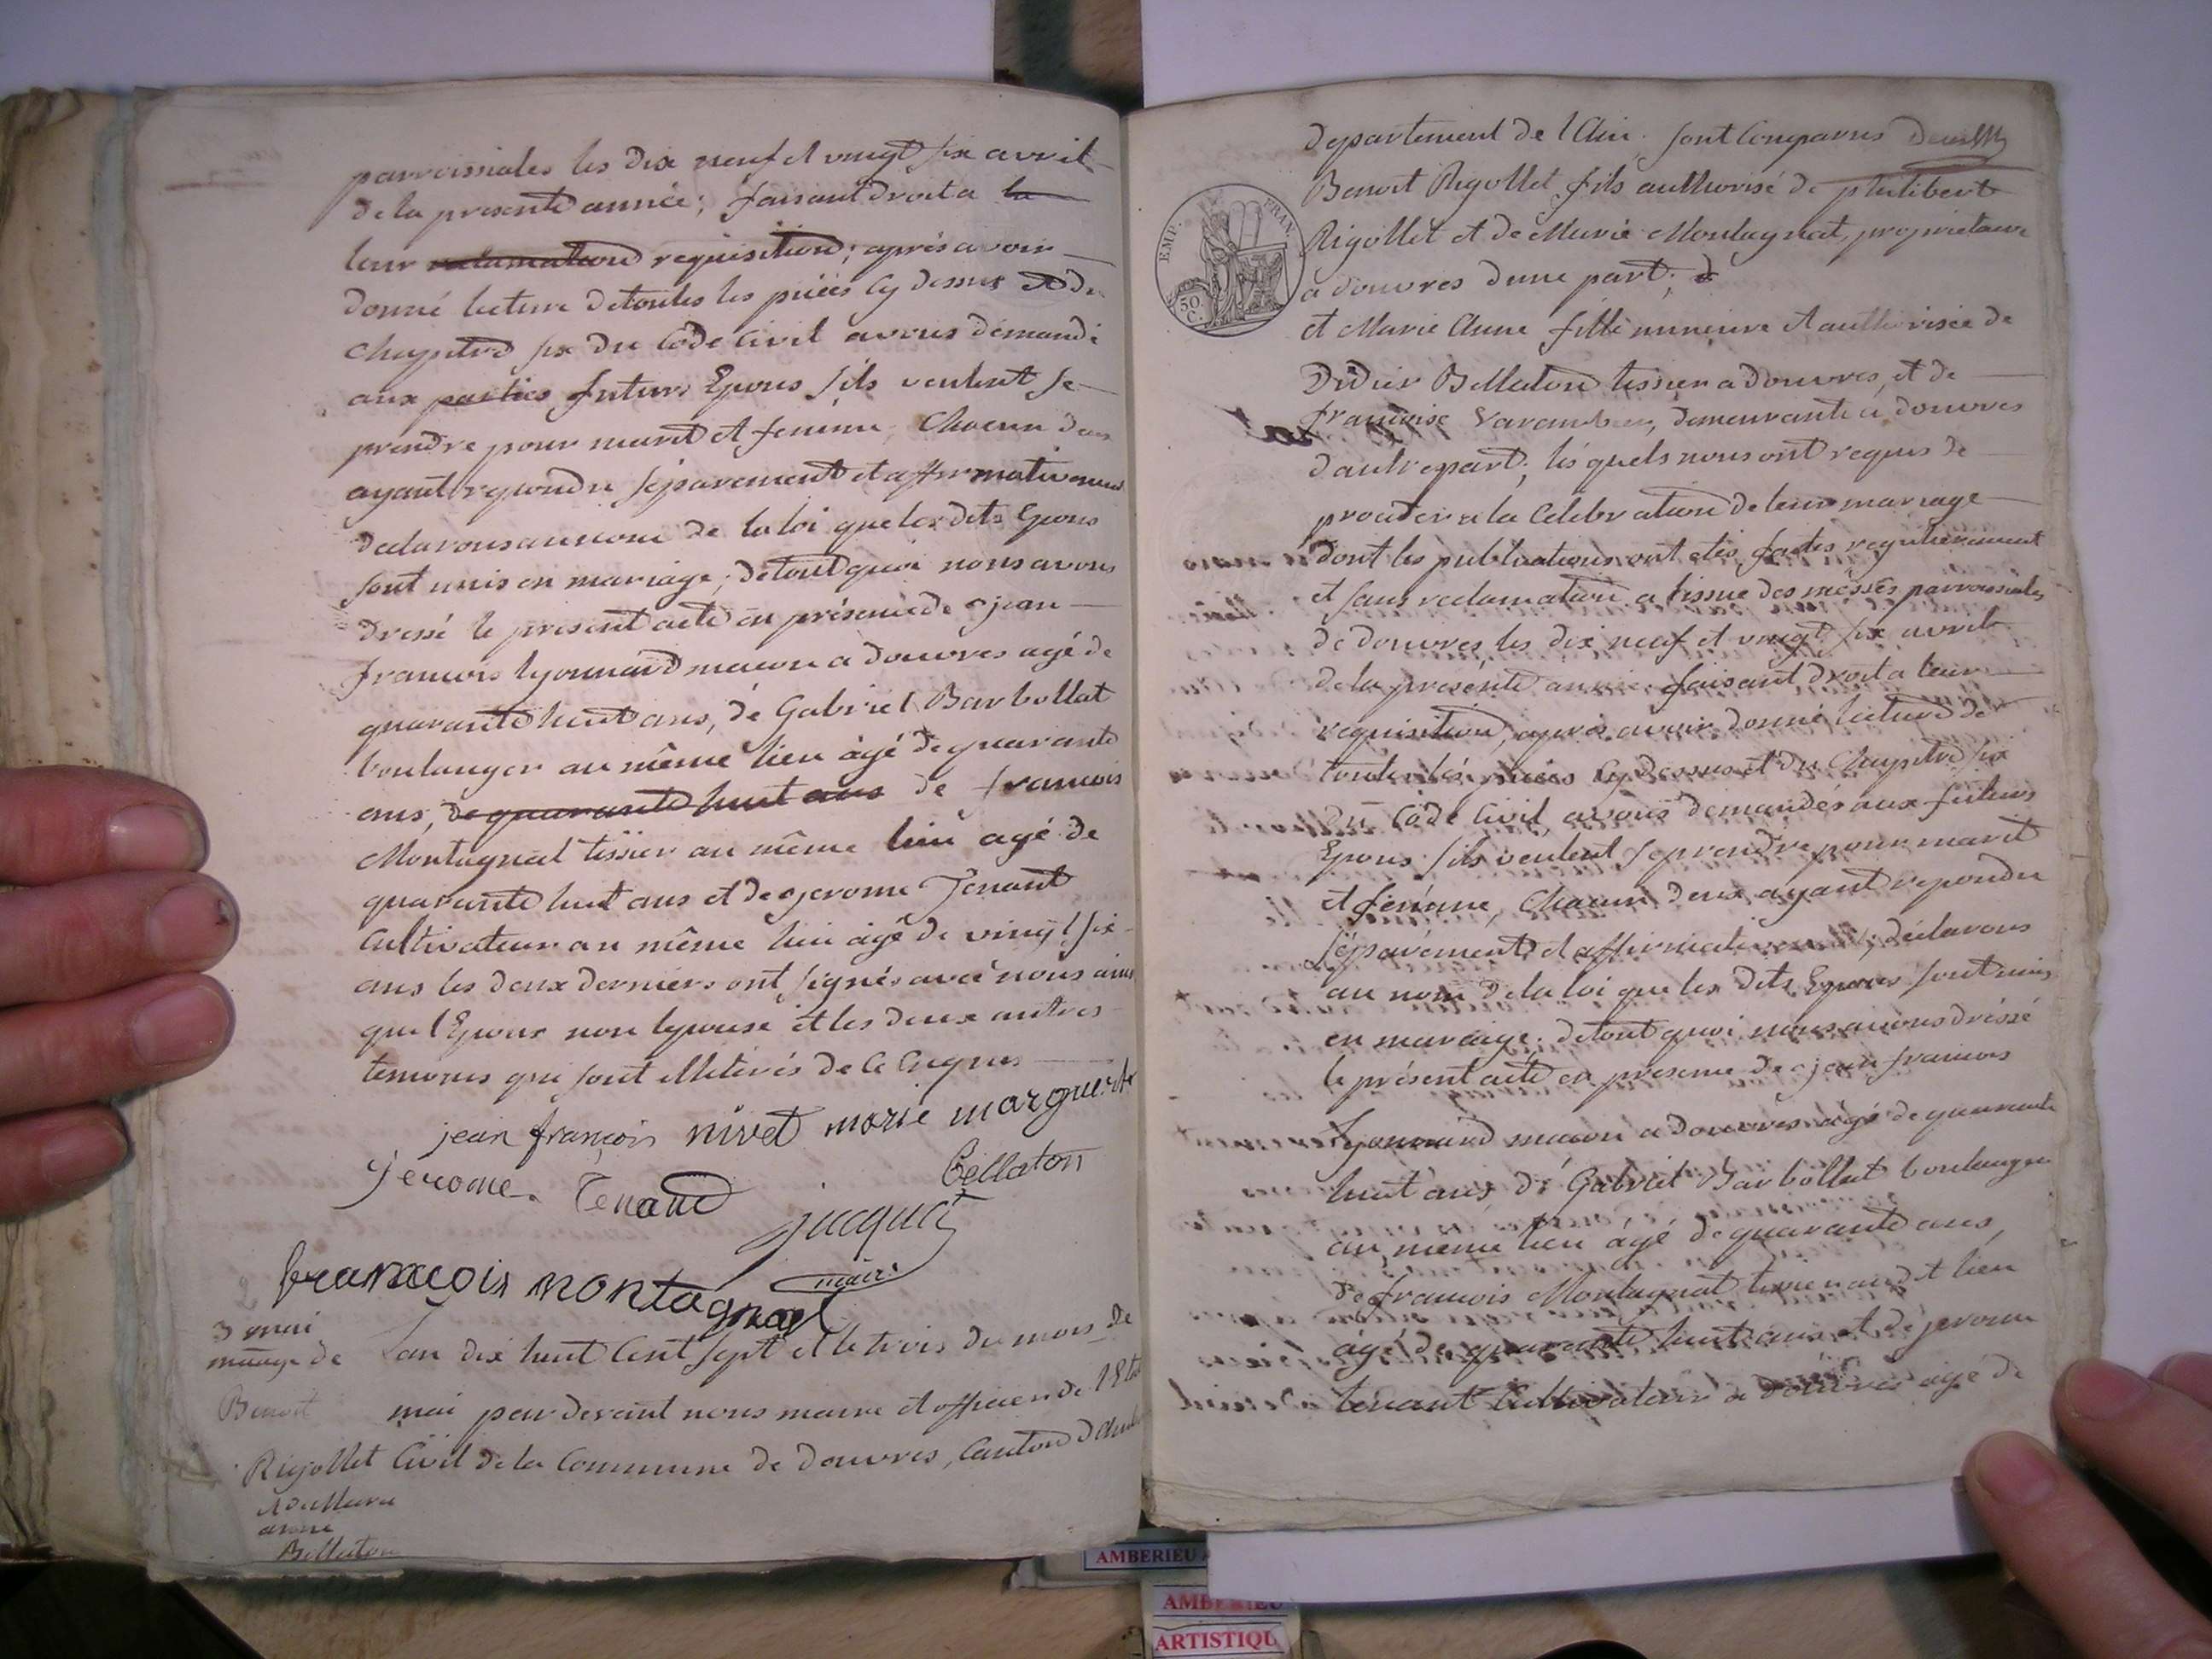 parroissiales les dix neuf et vingt six avril
de la presente année; faisant droit a la
leur reclamation requisition; après avoir
donné lecture de toutes les pièces cy dessus et du
chapitre six du Code Civil avons demandé
aux parties futurs Epous s'ils veulent se
prendre pour marit et femme, Chacun deux
ayant repondu séparement et affirmativement
declarons au nom de la loi que les dits Epous
sont unis en mariage; de tout quoi nous avons
dressé le present acte en présence de jean
francois lyonnard macon a douvres agé de
quarante huit ans, de Gabriel Barbollat
boulanger au même lieu âgé de quarante
ans, de quarante huit ans de francois
Montagnat tissier au même lieu agé de
quarante huit ans et de jerome Tenant
Cultivateur au même lieu agé de vingt six
ans les deux derniers ont signés avec nous ainsi
que l'Epoux non lepouse et les deux autres
temoins qui sont illiterés de ce enquis
jean françois nivet marie marguerite
jerome Tenand Bellaton
jacquet
maire
francois montagnat
3 mai
mariage de
Benoit
Rigollet
et de Marie
anne
Bellaton
Lan dix huit Cent sept et le trois du mois de
mai par devant nous maire et officier de l'Etat
Civil de la Commune de douvres, Canton d'Amb
departement de l'Ain. sont Comparus
Benoit Rigollet, fils authorisé de philibert
Rigollet et de Marie Montagnat, proprietaire
a douvres dune part; d
et Marie Anne fille mineure et authorisée de
Didier Bellaton tissier a douvres, et de
françoise Varambon, demeurante à douvres
dautre part; lésquels nous ont requis de
proceder a la Celebration de leur mariage
dont les publications ont etés faites regulièrement
et sans reclamation a lissue des messes parroissiales
de douvres, les dix neuf et vingt six avril
de la présente année. faisant droit a leur
requisition, après avoir donné lecture de
toutes les pièces Cy dessus et du Chapitre six
du Côde Civil, avons demandés aux futurs
Epous s'ils veulent se prendre pour marit
et femme, Chacun deux ayant repondu
séparément et affirmativement, déclarons
au nom de la loi que les dits Epous sont unis
en mariage. de tout quoi nous avons dréssé
le présent acte en presence de jean francois
Lyonnard macon a douvres agé de quarante
huit ans, de Gabriel Barbollat boulanger
au même lieu âgé de quarante ans,
de francois Montagnat tissier audit lieu
âgé de quarante huit ans et de jerome
tenant Cultivateur a douvres agé de
EMP. FRAN.
50 C.
AMBERIEU
AMBERIEU
ARTISTIQU